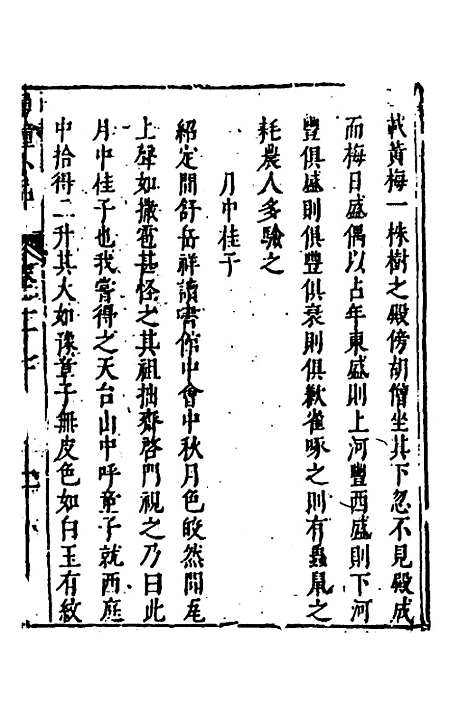 黃梅一株樹之殿傍胡僧坐其下忽不見殿成
而梅日盛偶以占年東盛則上河豐西盛則下河
豐俱盛則俱豐俱衰則俱歉雀啄之則有蟲鼠之
耗農人多驗之
月中桂子
紹定間舒岳祥讀書館中會中秋月色皎然聞瓦
上聲如撒雹甚怪之其祖拙齋啓門視之乃曰此
月中桂子也我嘗得之天台山中呼童子就西庭
中拾得二升其大如豫章子無皮色如白玉有紋